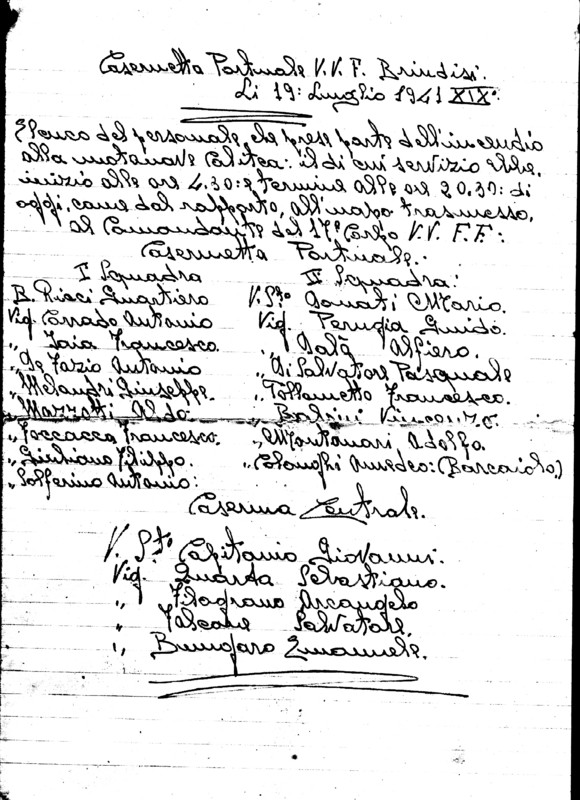 Casermetta Portuale V.V.F. Brindisi.
Li 19: Luglio 1941 XIX°:
Elenco del personale, che prese parte dell'incendio
alla motonave Calitea: il di cui servizio ebbe,
inizio alle ore 4.30: e termine alle ore 20.30: di
oggi, come dal rapporto, all'uopo trasmesso,
al Comandante del 17° Corpo V.V. F.F:
Casermetta Portuale:
I Squadra
II Squadra:
B. Ricci Gualtiero
V. St° Donati Mario.
Vig. Corrado Antonio
Vig. Perugia Guido.
" Jaia Francesco.
" Dalò Alfiero.
" De Fazio Antonio
" Di Salvatore Pasquale
" Melandri Giuseppe.
" Toffametto Francesco.
" Mazzotti Aldo.
" Balsini Vincenzo.
" Foccacca Francesco.
" Montanari Adolfo.
" Giuliano Filippo.
" Colonghi Amedeo: (Barcaiolo.)
" Solferino Antonio:
Caserma Centrale.
V. St° Capitanio Giovanni.
Vig. Quarta Sebastiano.
" Filograno Arcangelo
" Falcone Salvatore.
" Brunofaro Emanuele.